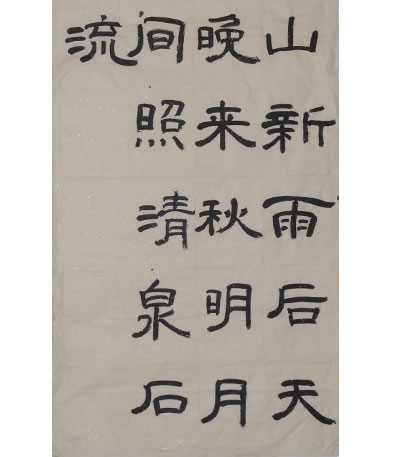 山新雨后天
晚来秋明月
间照清泉石
流